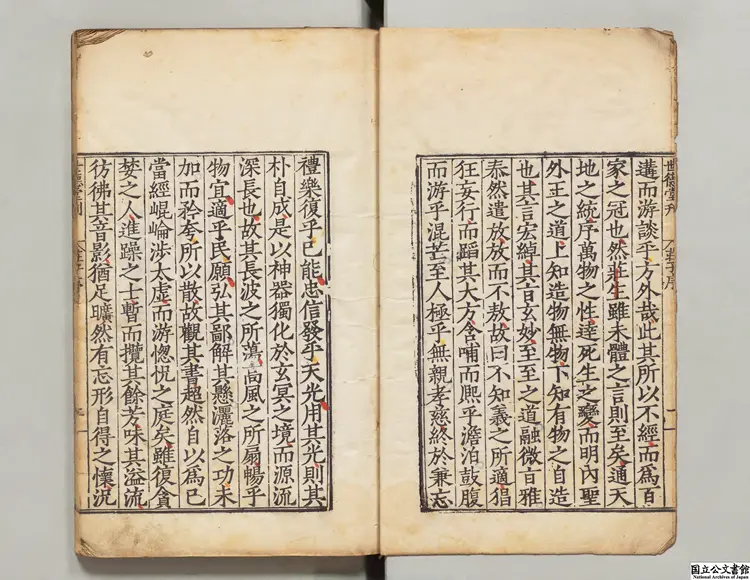 世德堂刊
莊子序
遘而游談乎方外哉此其所以不經而爲百
家之冠也然莊生雖未體之言則至矣通天
地之統序萬物之性達死生之變而明內聖
外王之道上知造物無物下知有物之自造
也其言宏綽其旨玄妙至至之道融微旨雅
泰然遣放放而不敖故曰不知義之所適猖
狂妄行而蹈其大方含哺而熙乎澹泊鼓腹
而游乎混芒至人極乎無親孝慈終於兼忘
禮樂復乎已能忠信發乎天光用其光則其
朴自成是以神器獨化於玄冥之境而源流
深長也故其長波之所蕩高風之所扇暢乎
物宜適乎民願弘其鄙解其懸灑落之功未
加而矜夸所以散故觀其書超然自以爲已
當經崐崘涉太虛而游惚怳之庭矣雖復貪
婪之人進躁之士暫而攬其餘芳味其溢流
彷彿其音影猶足曠然有忘形自得之懷況
国立公文書館
National Archives of Japan